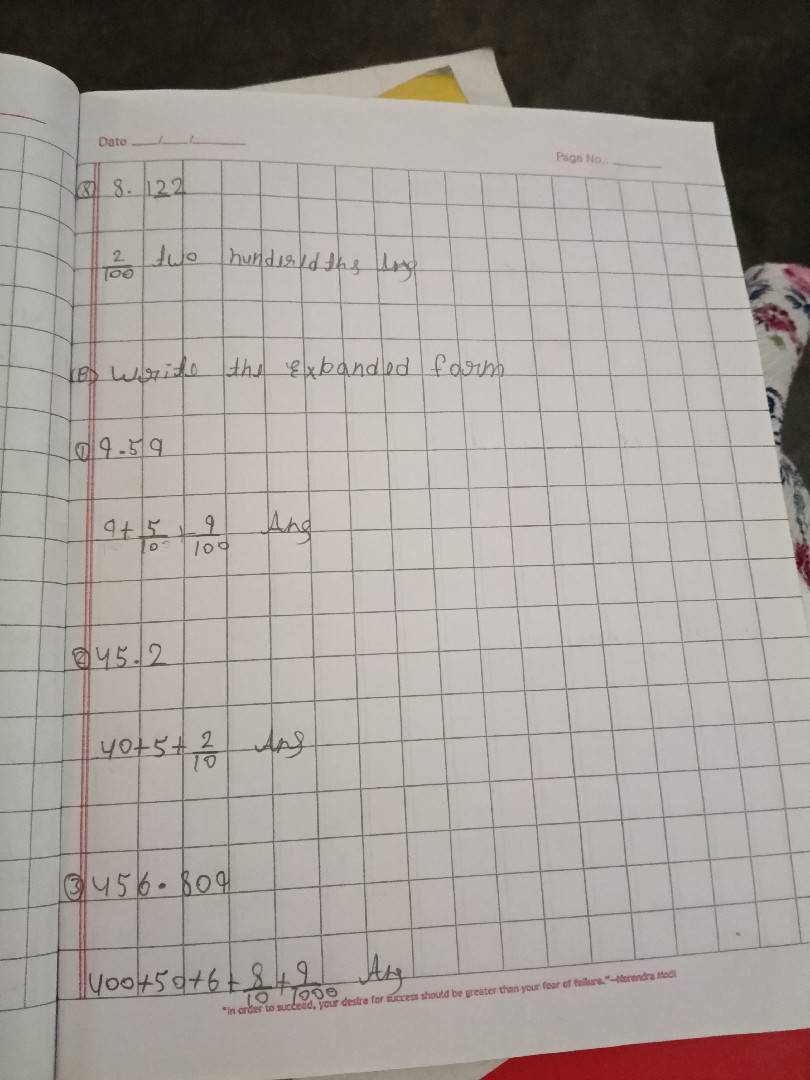 Date __/__/____
Page No.: ______
⑧ 8.122
2/100 two hundredths Ans
(B) Write the expanded form
① 9.59
9+5/10+9/100 Ans
② 45.2
40+5+2/10 Ans
③ 456.809
400+50+6+8/10+9/1000 Ans
"In order to succeed, your desire for success should be greater than your fear of failure."–Narendra Modi